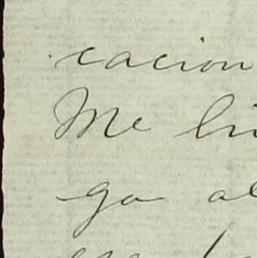 cacion
Me hi
ga al